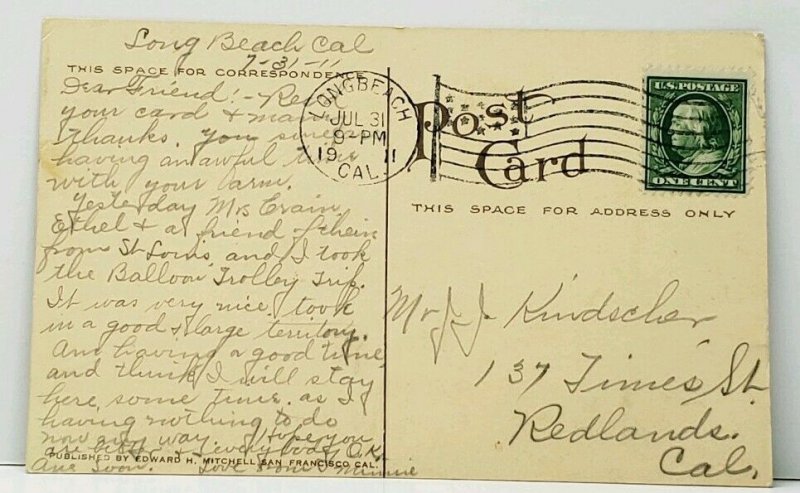 Long Beach Cal
7-31-11
THIS SPACE FOR CORRESPONDENCE
Dear Friend! - Rec'd
your card & many
thanks. you sure
having an awful time
with your arm.
Yesterday Mrs Crain,
Ethel & a friend of theirs
from St Louis, and I took
the Balloon Trolley Trip.
It was very nice, took
in a good & large territory.
Am having a good time
and think I will stay
here, some time, as I
having nothing to do
now any way. I hope you
are better & everybody O.K.
PUBLISHED BY EDWARD H. MITCHELL SAN FRANCISCO CAL.
Ans Soon. Love from Minnie
LONG BEACH
JUL 31
9-PM
1911
CAL.
Post
Card
U.S. POSTAGE
ONE CENT
THIS SPACE FOR ADDRESS ONLY
Mr J. J. Kindscher
137 Times St.
Redlands.
Cal.